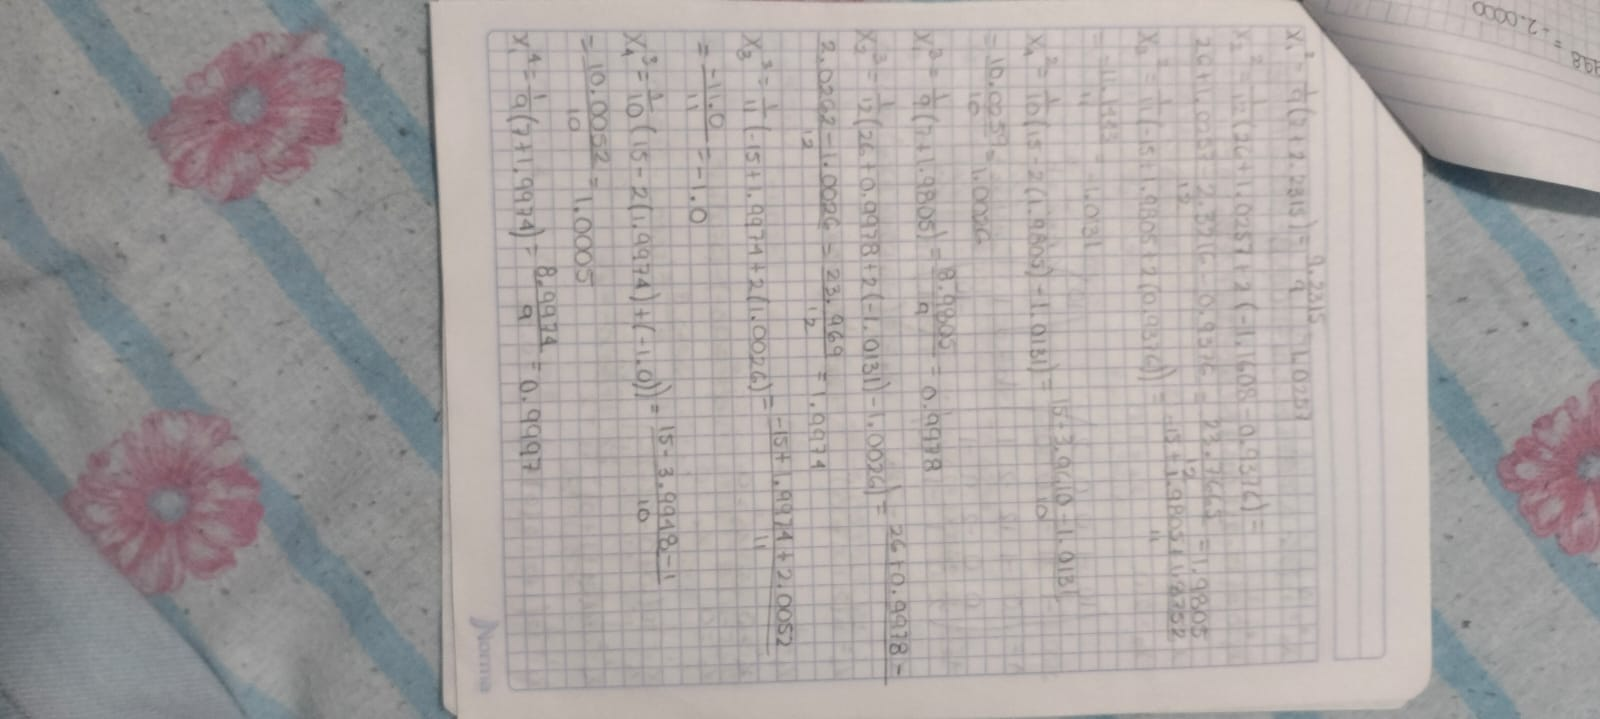 X₁² = 1/9 (7 + 2.2315) = 9.2315/9 = 1.0257
X₂² = 1/12 (26 + 1.0257 + 2(-1.1608 - 0.9376) =
26 + 1.0257 - 2.3216 - 0.9376/12 = 23.7665/12 = 1.9805
X₃² = 1/11 (-15 + 1.9805 + 2(0.9376)) = -15 + 1.9805 + 1.8752/11
= 11.1443/11 = -1.0131
X₄² = 1/10 (15 - 2(1.9805) - 1.0131) = 15 - 3.9610 - 1.0131/10
= 10.0259/10 = 1.0026
X₁³ = 1/9 (7 + 1.9805) = 8.9805/9 = 0.9978
X₂³ = 1/12 (26 + 0.9978 + 2(-1.0131) - 1.0026) = 26 + 0.9978 -
2.0262 - 1.0026/12 = 23.969/12 = 1.9974
X₃³ = 1/11 (-15 + 1.9974 + 2(1.0026)) = -15 + 1.9974 + 2.0052/11
= -11.0/11 = -1.0
X₄³ = 1/10 (15 - 2(1.9974) + (-1.0)) = 15 - 3.9948 - 1/10
= 10.0052/10 = 1.0005
X₁⁴ = 1/9 (7 + 1.9974) = 8.9974/9 = 0.9997
Norma
998 = -2.0000